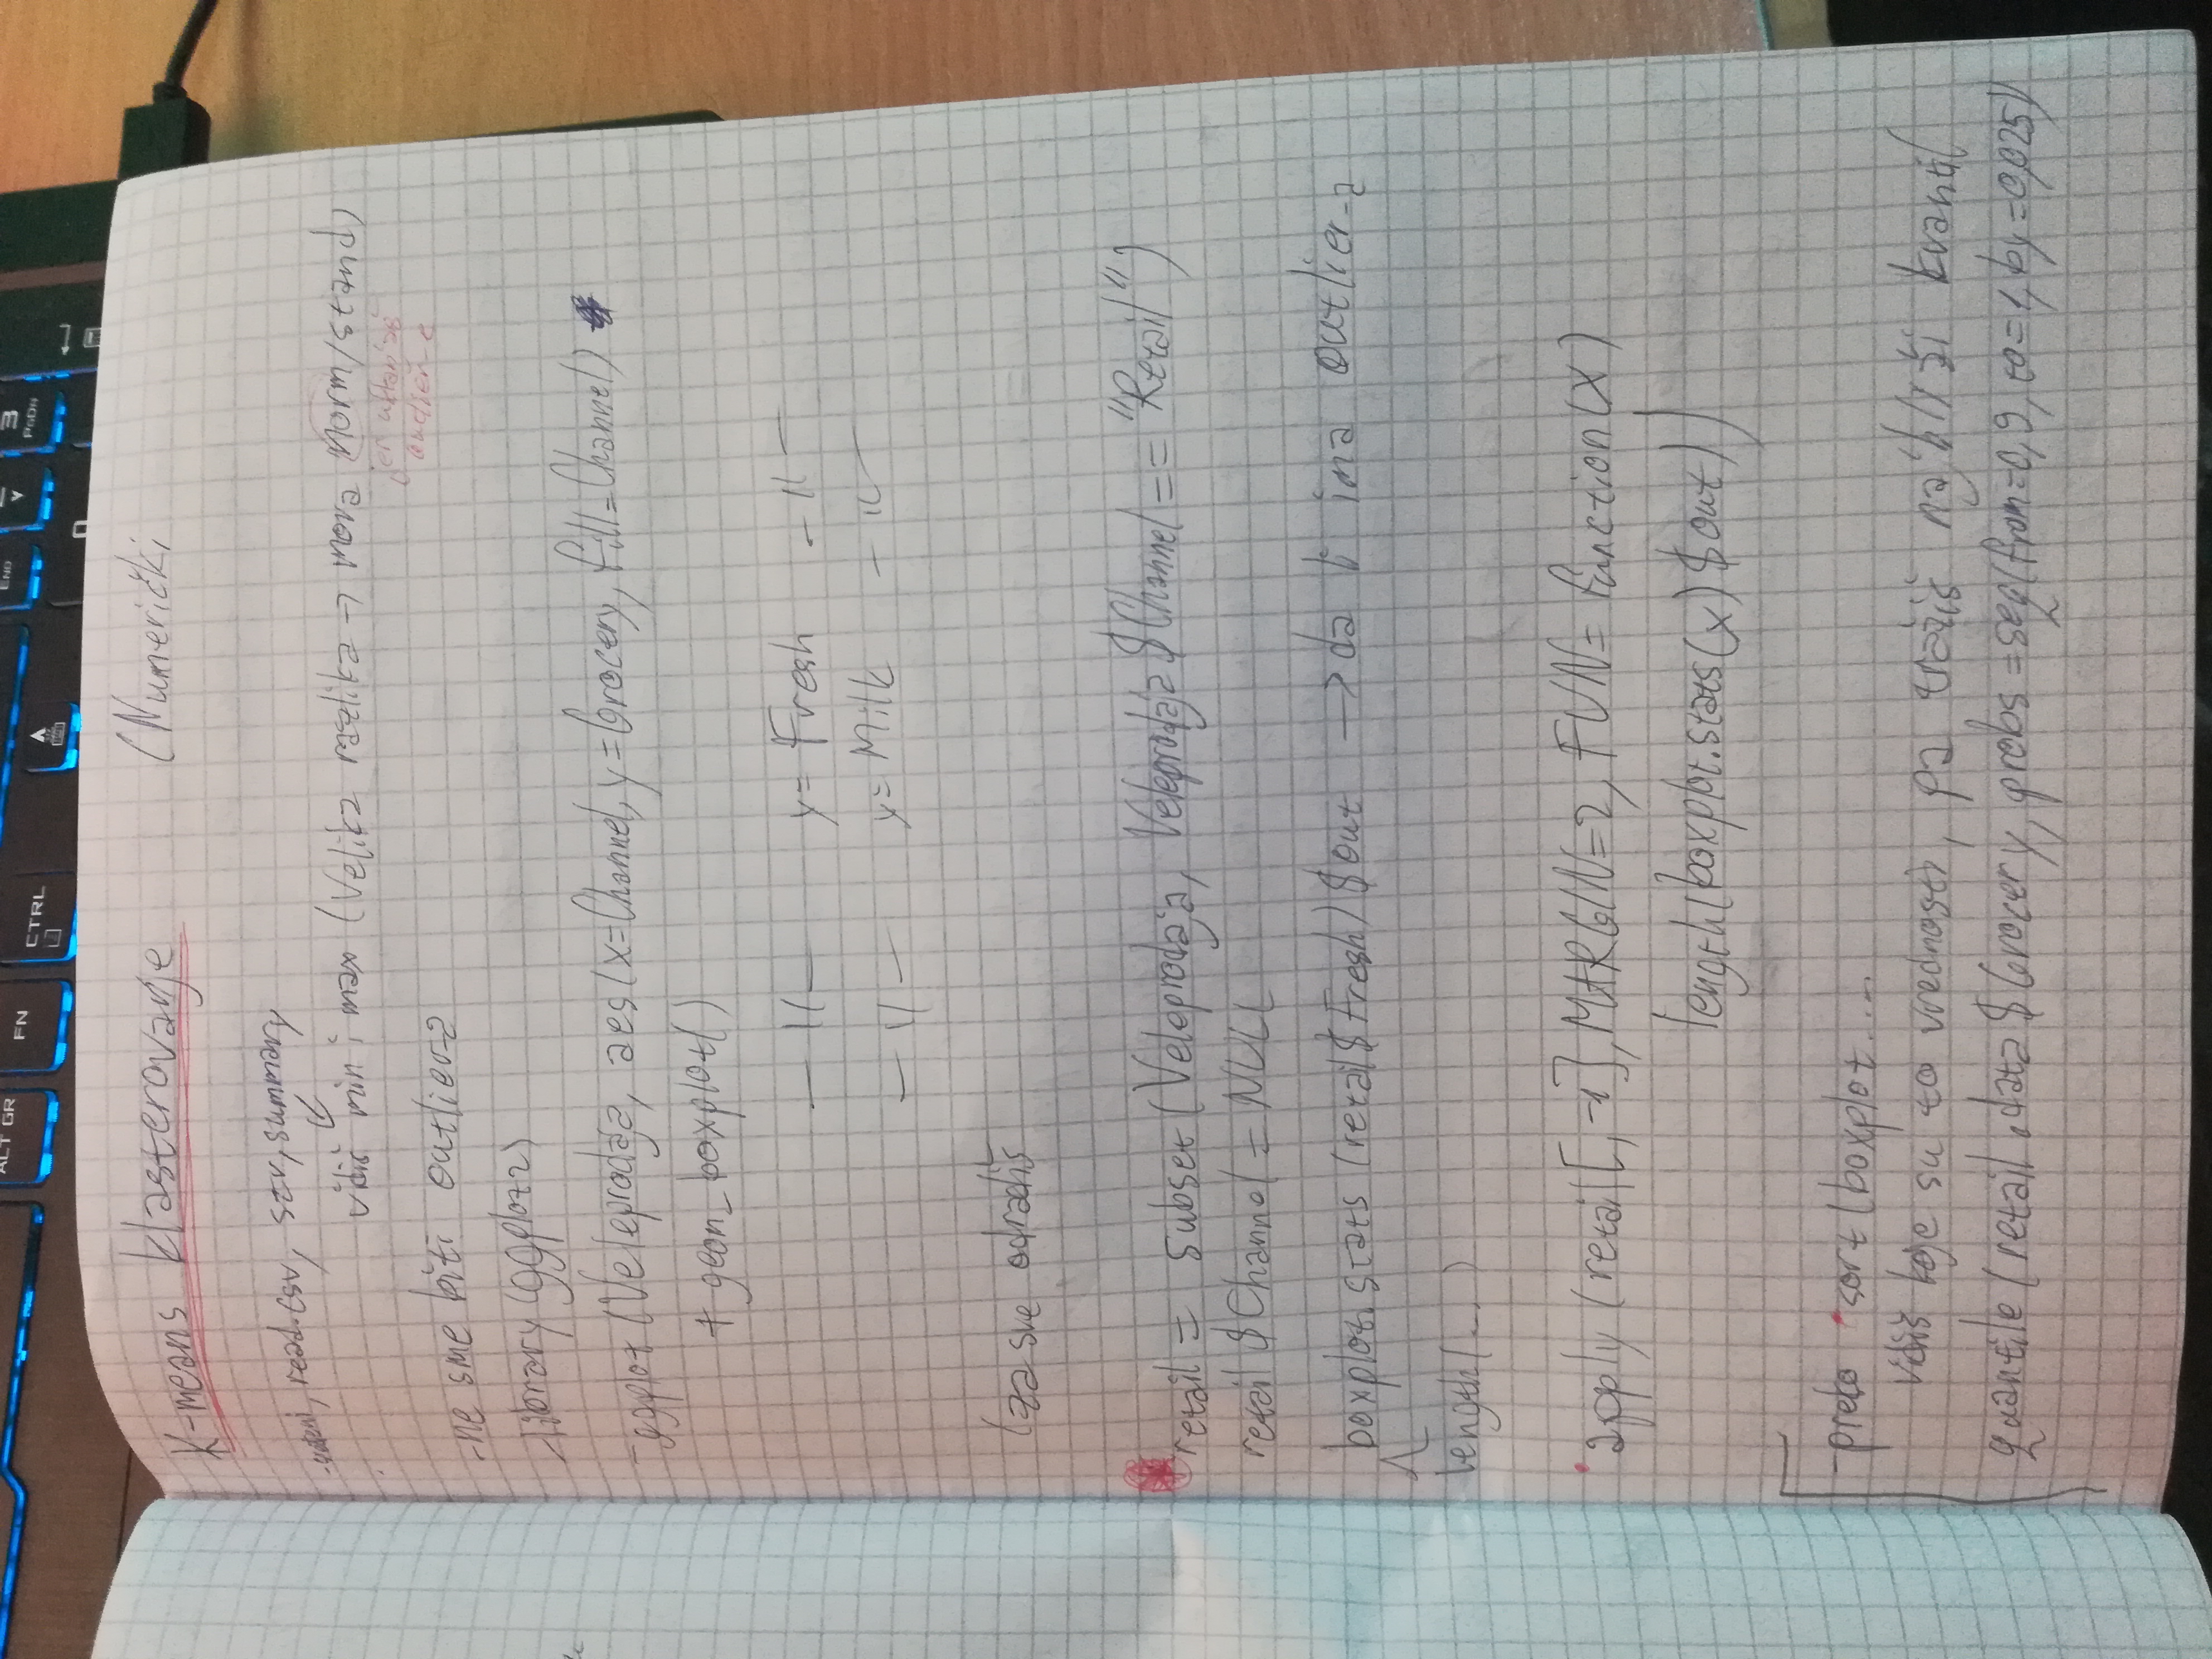 ALT GR
FN
CTRL
END
3
PGDN
0
K-means klasterovanje (Numerički
read.csv, str, summary
vidiš min i max (Velika razlika → mora norm/stand)
jer uklanjaš
outlier-e
-ne sme biti outlier-a
-library(ggplot2)
-ggplot(Veleprodaja, aes(x=Channel, y=Grocery, fill=Channel)
+ geom_boxplot()
—11— y= Fresh —11—
—11— y= Milk —11—
(za sve odradiš
retail = subset(Veleprodaja, Veleprodaja$Channel == "Retail")
retail$Channel = NULL
boxplot.stats(retail$Fresh)$out → da li ima outlier-a
length(...)
apply(retail[,-1], MARGIN=2, FUN= function(x)
length(boxplot.stats(x)$out))
-preko sort(boxplot....
vidiš koje su to vrednosti, pa tražiš najbliži kvantil
quantile(retail.data$Grocery, probs=seq(from=0,9, to=1, by=0,025))